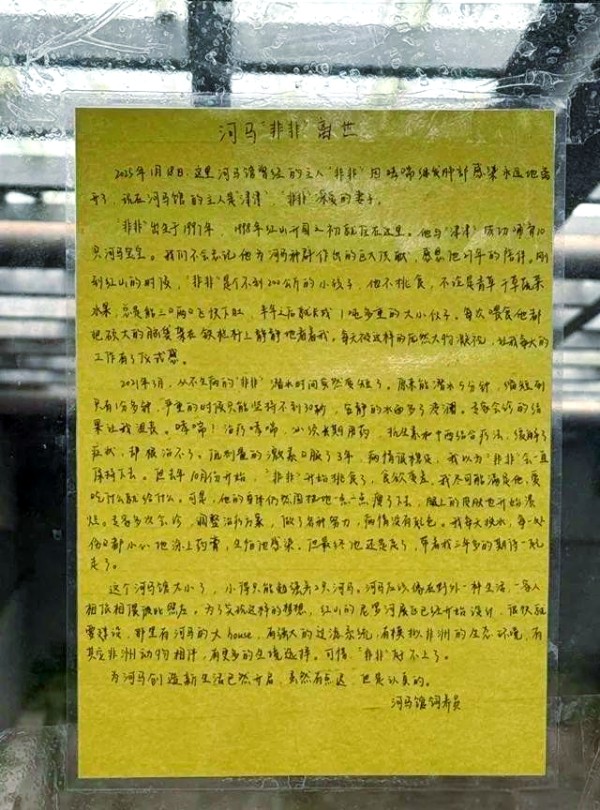 河马"非非"离世
2025年1月18日,这里河马馆曾经的主人"非非"因哮喘继发肺部感染永远地离
开了,现在河马馆的主人是"津津","非非"深爱的妻子。
"非非"出生于1997年,1998年红山开园之初就住在这里。他与"津津"成功诞育10
只河马宝宝。我们不会忘记他为河马种群作出的巨大贡献,感恩他27年的陪伴。刚
到红山的时候,"非非"是个不到200公斤的小孩子,他不挑食,不论是青草干草蔬菜
水果,总是能三口两口飞快下肚,半年之后就长成1吨多重的大小伙子。每次喂食他都
把硕大的脑袋架在铁栏杆上静静地看着我。每天被这样的庞然大物凝视,让我每天的
工作有了仪式感。
2021年3月,从不生病的"非非"潜水时间突然变短了。原来能潜水5分钟,缩短到
只有1分多钟,严重的时候只能坚持不到30秒,安静的水面多了浪潮。专家会诊的结
果让我沮丧。哮喘!治疗哮喘,必须长期用药,抗生素和中西结合疗法,缓解了
症状,却根治不了。低剂量的激素口服了3年,病情很稳定,我以为"非非"会一直
保持下去。但去年10月份开始,"非非"开始挑食了,食欲变差,我尽可能满足他,爱
吃什么就给什么。可是,他的身体仍然固执地一点一点瘦了下去,腿上的皮肤也开始溃
烂。专家多次会诊,调整治疗方案,做了各种努力,病情没有起色。我每天换水,每一处
伤口都小心地涂上药膏,生怕他感染。但最终他还是走了,带着我三年多的期待一起
走了。
这个河马馆太小了,小得只能勉强养2只河马。河马应该像在野外一样生活,一家人
相依相偎彼此照应。为了实现这样的梦想,红山的尼罗河展区已经开始设计,很快就
要建设,那里有河马的大house,有强大的过滤系统,有模拟非洲的生态环境,有
其它非洲动物相伴,有更多的生境选择。可惜,"非非"赶不上了。
为河马创造新生活已然开启,虽然有点迟,但是认真的。
河马馆饲养员